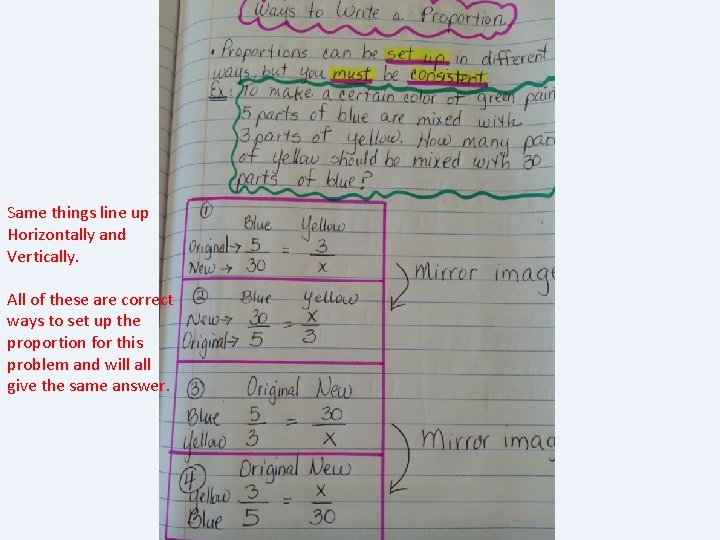 Ways to Write a Proportion
• Proportions can be set up in different
ways, but you must be consistent
Ex: To make a certain color of green pain
5 parts of blue are mixed with
3 parts of yellow. How many par
of yellow should be mixed with 30
parts of blue?
Same things line up
Horizontally and
Vertically.
All of these are correct
ways to set up the
proportion for this
problem and will all
give the same answer.
① Blue Yellow
Original→ 5 = 3
New → 30 x
Mirror image
② Blue Yellow
New→ 30 = x
Original→ 5 3
③ Original New
Blue 5 = 30
Yellow 3 x
Mirror imag
④ Original New
Yellow 3 = x
Blue 5 30